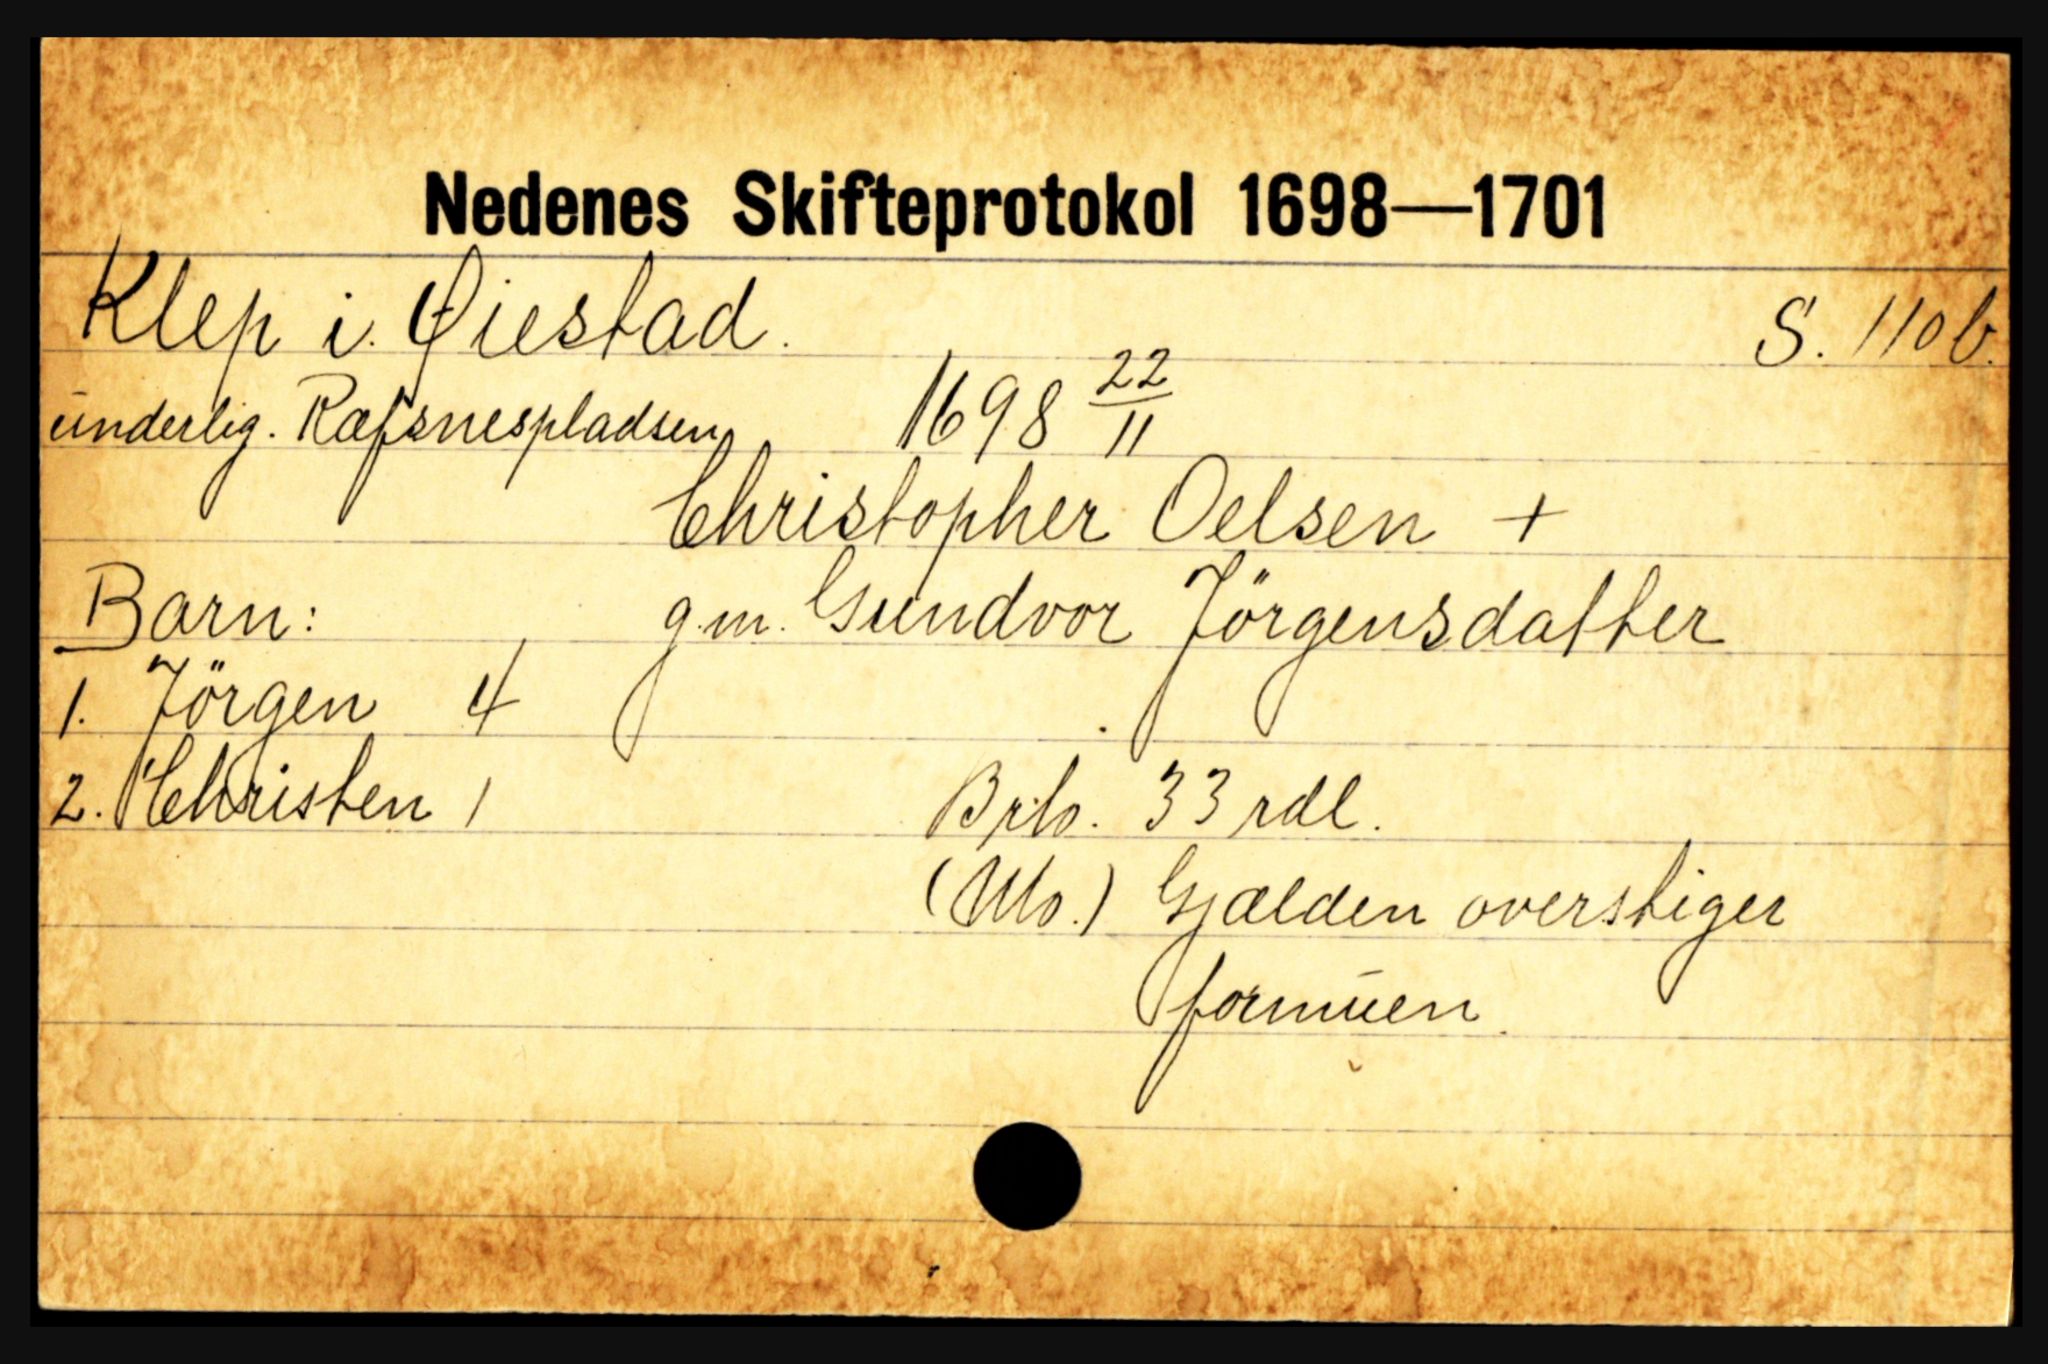 Nedenes Skifteprotokol 1698—1701
Klep i. Øiestad. S. 110b.
underlig. Ræfsnespladsen 1698 22/11
Christopher Oelsen +
Barn: g.m. Gundvor Jörgensdatter
1. Jörgen 4
2. Christen 1 Brto. 33 rdl.
Gjælden overstiger
formuen